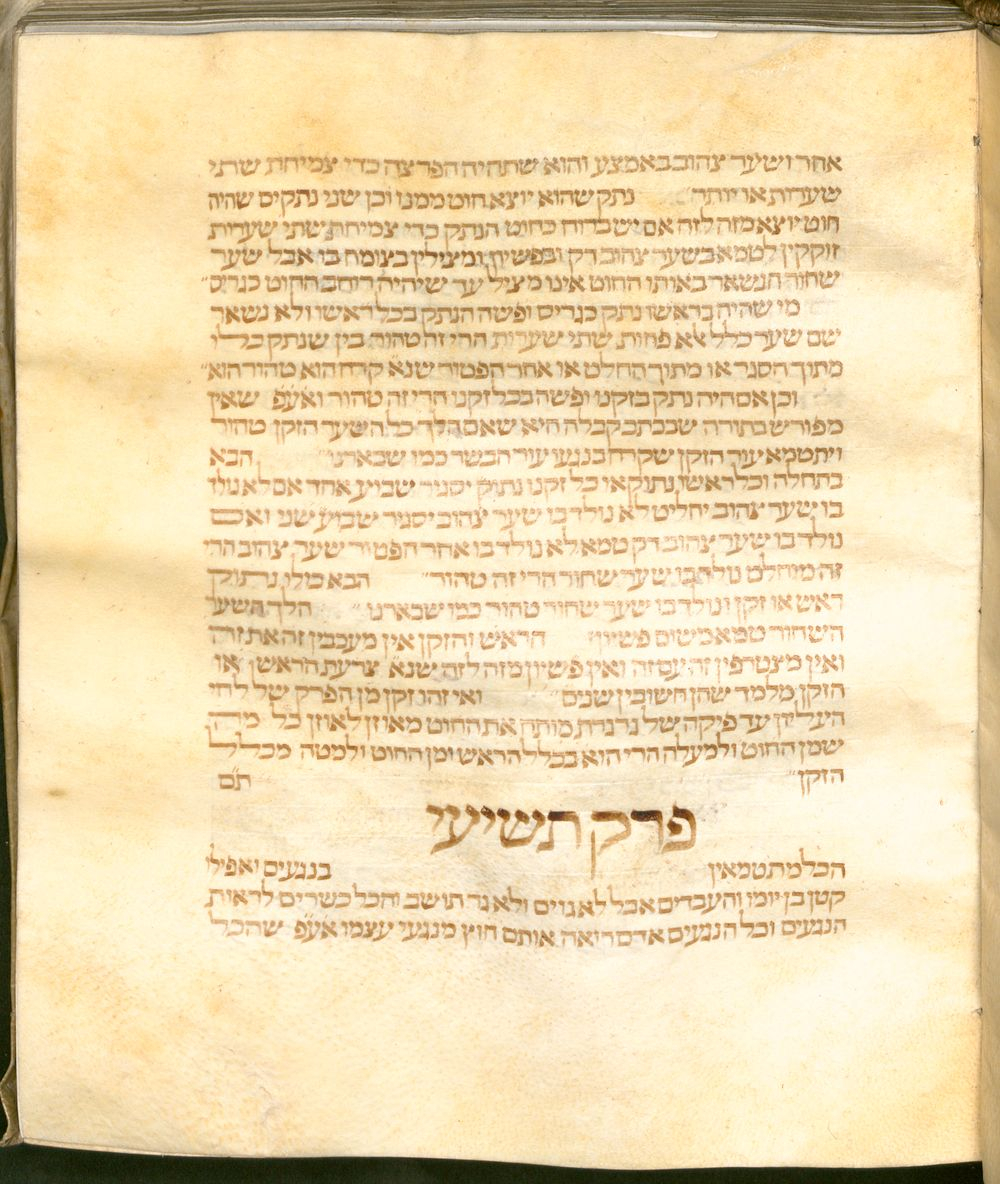 אחר ושער צהוב באמצע והוא שתהיה הפרצה כדי צמיחת שתי
שערות או יותר״ נתק שהוא יוצא חוט ממנו וכן שני נתקים שהיה
חוט יוצא מזה לזה אם יש ברוח כחוט הנתק כדי צמיחת שתי שערות
זוקקין לטמא בשער צהוב דק ובפשיון ומצילין בצומח בו אבל שער
שחור הנשאר באותו החוט אינו מציל עד שיהיה רוחב החוט כגריס״
מי שהיה בראשו נתק כגריס ופשה הנתק בכל ראשו ולא נשאר
שם שער כלל אלא פחות משתי שערות הרי זה טהור בין שנתק כולו
מתוך הסגר או מתוך החלט או אחר הפטור שנא׳ קרח הוא טהור הוא״
וכן אם היה נתק בזקנו ופשה בכל זקנו הרי זה טהור ואע״פ שאין
מפורש בתורה שבכתב קבלה היא שאם הלך כל השער הזקן טהור
ויתטמא עור הזקן שקרח בנגעי עור הבשר כמו שבארנו״ הבא
בתחלה וכל ראשו נתוק או כל זקנו נתוק יסגיר שבוע אחד אם לא נולד
בו שער צהוב יחליט לא נולד בו שער צהוב יסגיר שבוע שני ואם
נולד בו שער צהוב דק טמא לא נולד בו אחר הפטור שער צהוב הרי
זה מוחלט נולד בו שער שחור הרי זה טהור״ הבא כולו נתוק
ראש או זקן ונולד בו שער שחור טהור כמו שבארנו״ הלך השער
השחור טמא משום פשיון״ הראש והזקן אין מעכבין זה את זה
ואין מצטרפין זה עם זה ואין פשיון מזה לזה שנא׳ צרעת הראש או
הזקן מלמד שהן חשובין שנים״ ואי זהו זקן מן הפרק של לחי
העליון עד פיקה של גרגרת מותח את החוט מאוזן לאוזן כל מה
שמן החוט ולמעלה הרי הוא בכלל הראש ומן החוט ולמטה מכלל
הזקן״ ת״ם
פרק תשיעי
הכל מתטמאין בנגעים ואפילו
קטן בן יומו והעבדים אבל לא גוים ולא גר תושב והכל כשרים לראות
הנגעים וכל הנגעים אדם רואה אותם חוץ מנגעי עצמו אע״פ שהכל